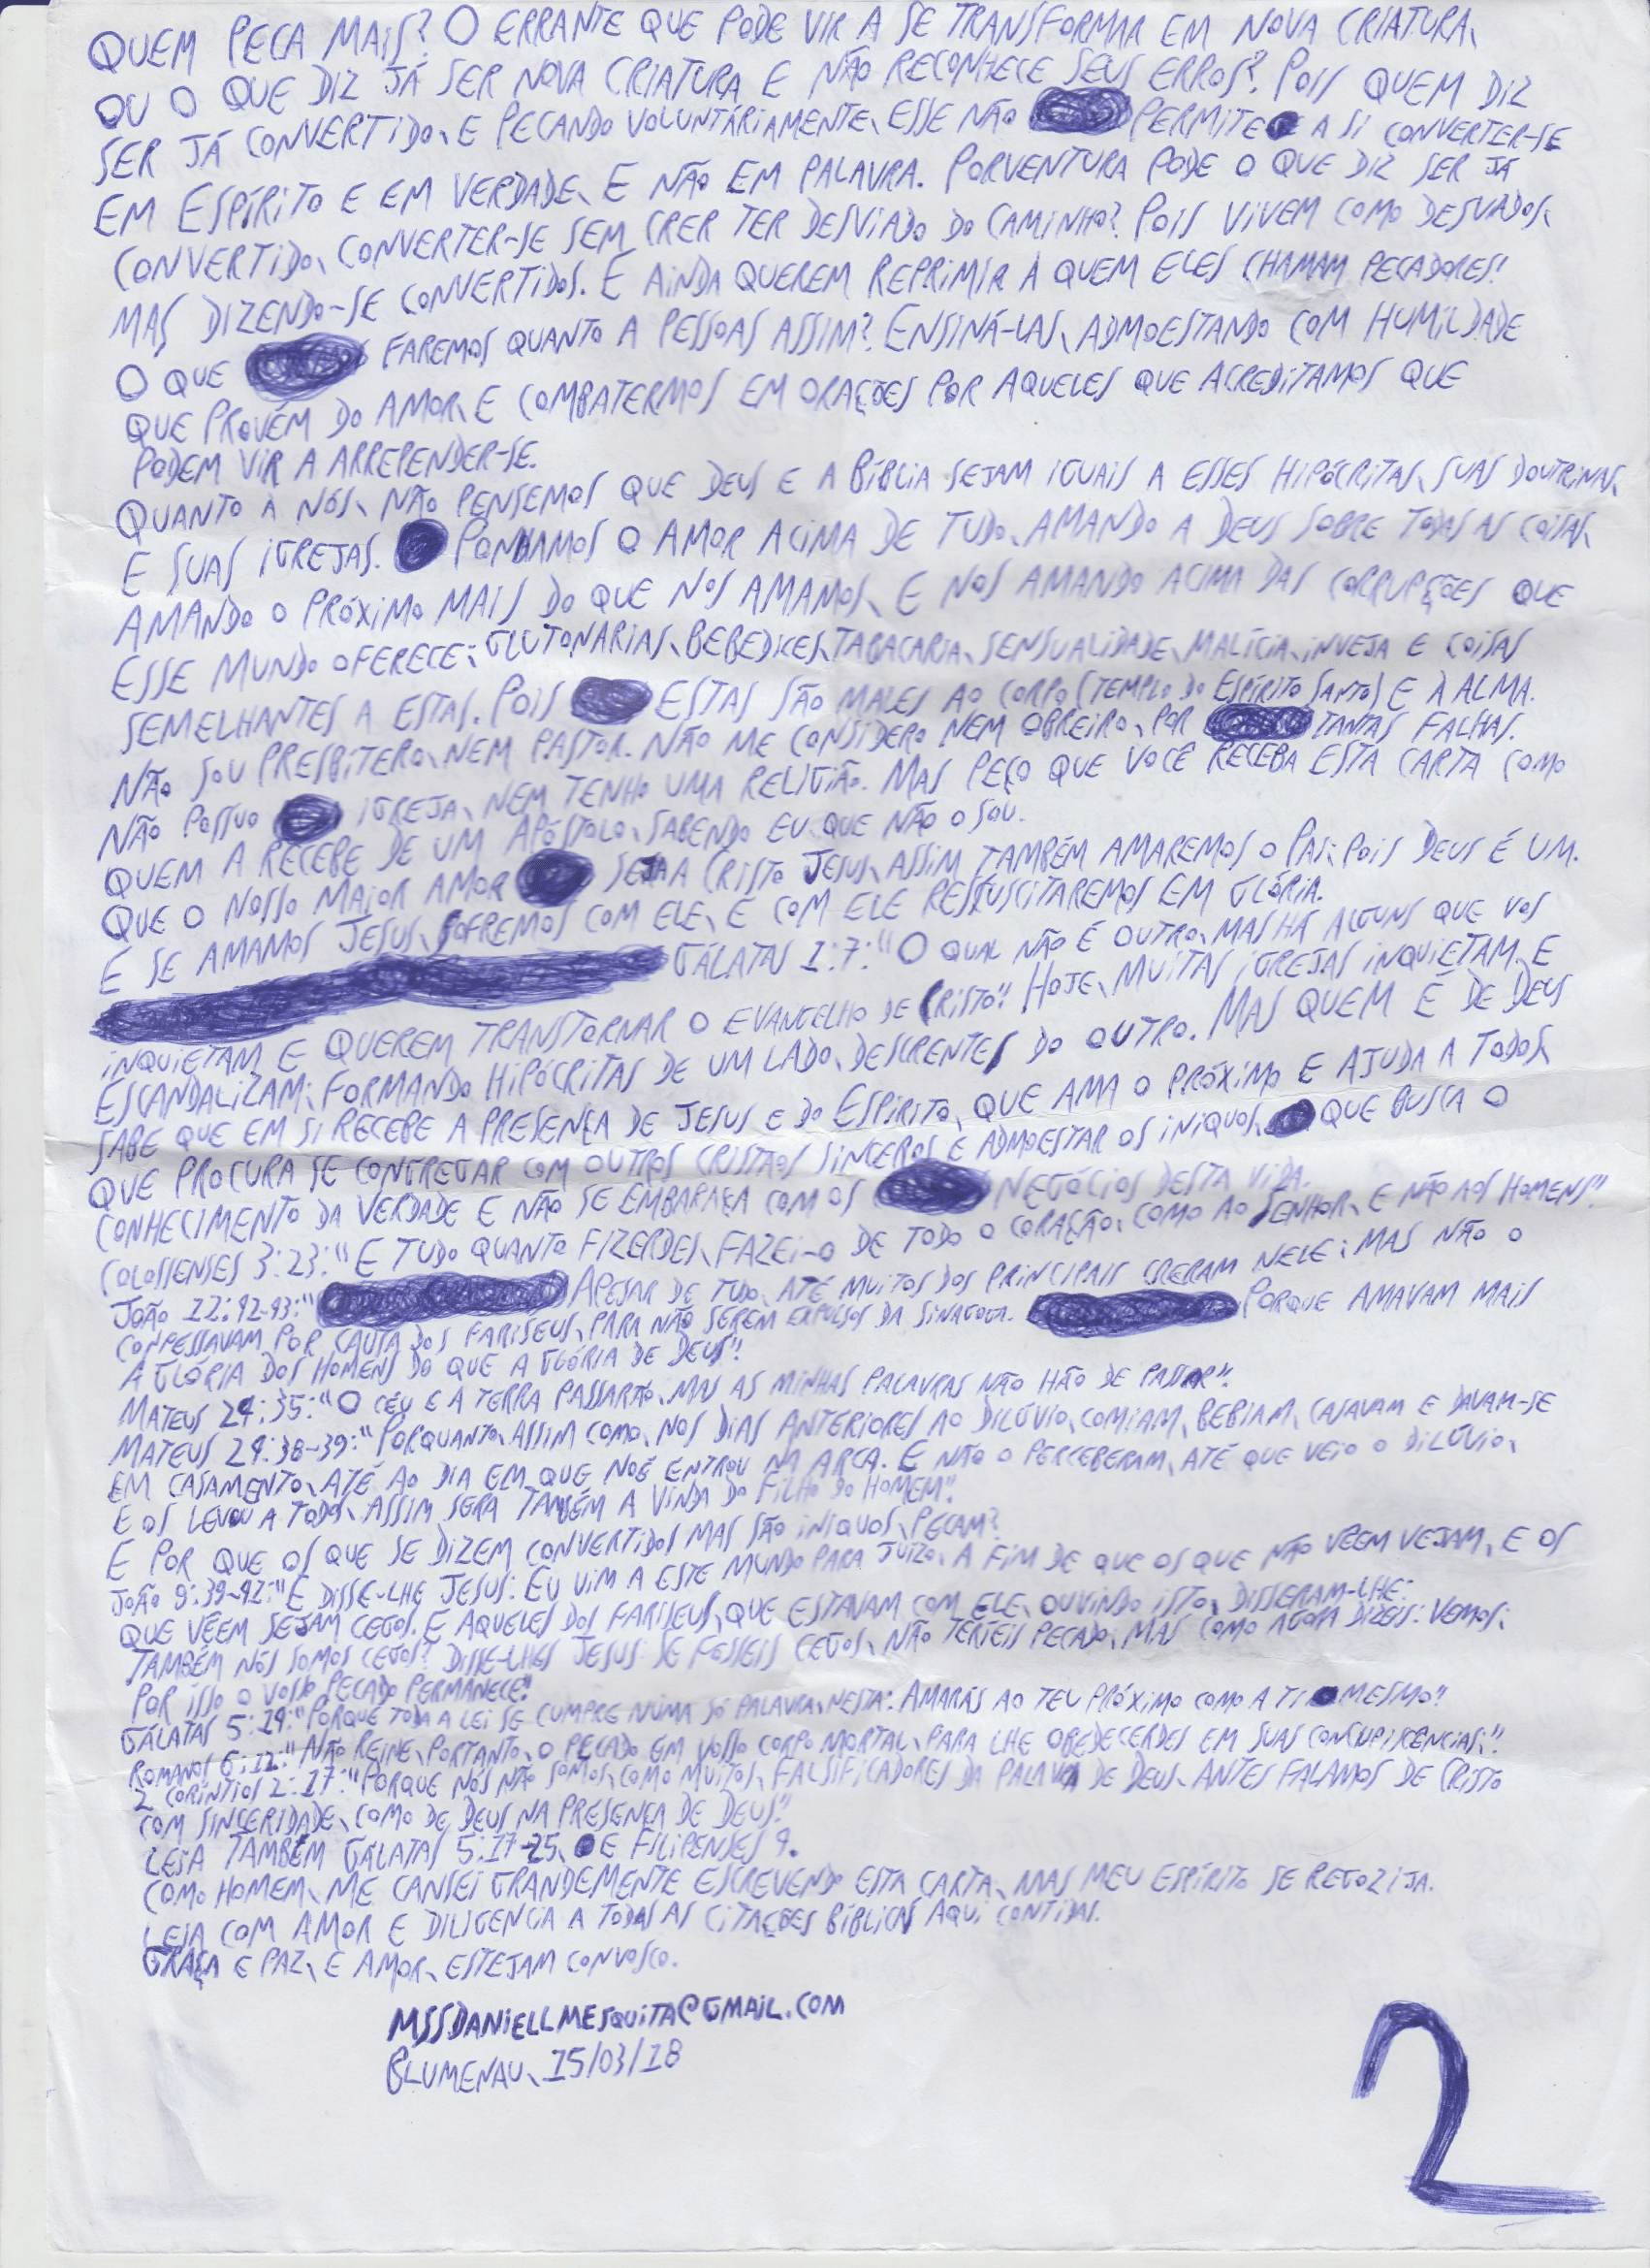 QUEM PECA MAIS? O ERRANTE QUE PODE VIR A SE TRANSFORMAR EM NOVA CRIATURA,
OU O QUE DIZ JÁ SER NOVA CRIATURA E NÃO RECONHECE SEUS ERROS? POIS QUEM DIZ
SER JÁ CONVERTIDO, E PECANDO VOLUNTÁRIAMENTE, ESSE NÃO PERMITE A SI CONVERTER-SE
EM ESPÍRITO E EM VERDADE, E NÃO EM PALAVRA. PORVENTURA PODE O QUE DIZ SER JÁ
CONVERTIDO, CONVERTER-SE SEM CRER TER DESVIADO DO CAMINHO? POIS VIVEM COMO DESVADOS,
MAS DIZENDO-SE CONVERTIDOS. E AINDA QUEREM REPRIMIR A QUEM ELES CHAMAM PECADORES!
O QUE FAREMOS QUANTO A PESSOAS ASSIM? ENSINÁ-LAS, ADMOESTANDO COM HUMILDADE
QUE PROVÉM DO AMOR, E COMBATERMOS EM ORAÇÕES POR AQUELES QUE ACREDITAMOS QUE
PODEM VIR A ARREPENDER-SE.
QUANTO A NÓS, NÃO PENSEMOS QUE DEUS E A BÍBLIA SEJAM IGUAIS A ESSES HIPÓCRITAS, SUAS DOUTRINAS,
E SUAS IGREJAS. PONHAMOS O AMOR ACIMA DE TUDO, AMANDO A DEUS SOBRE TODAS AS COISAS,
AMANDO O PRÓXIMO MAIS DO QUE NOS AMAMOS, E NOS AMANDO ACIMA DAS CORRUPÇÕES QUE
ESSE MUNDO OFERECE: GLUTONARIAS, BEBEDICES, TABACARIA, SENSUALIDADE, MALÍCIA, INVEJA E COISAS
SEMELHANTES A ESTAS. POIS ESTAS SÃO MALES AO CORPO (TEMPLO DO ESPÍRITO SANTO) E À ALMA.
NÃO SOU PRESBÍTERO, NEM PASTOR. NÃO ME CONSIDERO NEM OBREIRO, POR TANTAS FALHAS.
NÃO POSSUO IGREJA, NEM TENHO UMA RELIGIÃO. MAS PEÇO QUE VOCÊ RECEBA ESTA CARTA COMO
QUEM A RECEBE DE UM APÓSTOLO, SABENDO EU QUE NÃO O SOU.
QUE O NOSSO MAIOR AMOR SEJA A CRISTO JESUS, ASSIM TAMBÉM AMAREMOS O PAI; POIS DEUS É UM.
E SE AMAMOS JESUS, SOFREMOS COM ELE, E COM ELE RESSUSCITAREMOS EM GLÓRIA.
GÁLATAS 1:7: "O QUAL NÃO É OUTRO, MAS HÁ ALGUNS QUE VOS
INQUIETAM E QUEREM TRANSTORNAR O EVANGELHO DE CRISTO". HOJE, MUITAS IGREJAS INQUIETAM E
ESCANDALIZAM; FORMANDO HIPÓCRITAS DE UM LADO, DESCRENTES DO OUTRO. MAS QUEM É DE DEUS
SABE QUE EM SI RECEBE A PRESENÇA DE JESUS E DO ESPÍRITO, QUE AMA O PRÓXIMO E AJUDA A TODOS,
QUE PROCURA SE CONGREGAR COM OUTROS CRISTÃOS SINCEROS E ADMOESTAR OS INIQUOS, QUE BUSCA O
CONHECIMENTO DA VERDADE E NÃO SE EMBARAÇA COM OS NEGÓCIOS DESTA VIDA.
COLOSSENSES 3:23: "E TUDO QUANTO FIZERDES, FAZEI-O DE TODO O CORAÇÃO, COMO AO SENHOR, E NÃO AOS HOMENS".
JOÃO 12:42-43: " APESAR DE TUDO, ATÉ MUITOS DOS PRINCIPAIS CRERAM NELE; MAS NÃO O
CONFESSAVAM POR CAUSA DOS FARISEUS, PARA NÃO SEREM EXPULSOS DA SINAGOGA. PORQUE AMAVAM MAIS
A GLÓRIA DOS HOMENS DO QUE A GLÓRIA DE DEUS".
MATEUS 24:35: "O CÉU E A TERRA PASSARÃO, MAS AS MINHAS PALAVRAS NÃO HÃO DE PASSAR".
MATEUS 24:38-39: "PORQUANTO, ASSIM COMO, NOS DIAS ANTERIORES AO DILÚVIO, COMIAM, BEBIAM, CASAVAM E DAVAM-SE
EM CASAMENTO, ATÉ AO DIA EM QUE NOÉ ENTROU NA ARCA. E NÃO O PERCEBERAM, ATÉ QUE VEIO O DILÚVIO,
E OS LEVOU A TODOS, ASSIM SERÁ TAMBÉM A VINDA DO FILHO DO HOMEM".
E POR QUE OS QUE SE DIZEM CONVERTIDOS MAS SÃO INIQUOS, PECAM?
JOÃO 9:39-41: "E DISSE-LHE JESUS: EU VIM A ESTE MUNDO PARA JUÍZO, A FIM DE QUE OS QUE NÃO VÊEM VEJAM, E OS
QUE VÊEM SEJAM CEGOS. E AQUELES DOS FARISEUS, QUE ESTAVAM COM ELE, OUVINDO ISTO, DISSERAM-LHE:
TAMBÉM NÓS SOMOS CEGOS? DISSE-LHES JESUS: SE FÔSSEIS CEGOS, NÃO TERÍEIS PECADO; MAS COMO AGORA DIZEIS: VEMOS;
POR ISSO O VOSSO PECADO PERMANECE".
GÁLATAS 5:14: "PORQUE TODA A LEI SE CUMPRE NUMA SÓ PALAVRA, NESTA: AMARÁS AO TEU PRÓXIMO COMO A TI MESMO".
ROMANOS 6:12: "NÃO REINE, PORTANTO, O PECADO EM VOSSO CORPO MORTAL, PARA LHE OBEDECERDES EM SUAS CONCUPISCENCIAS;".
2 CORÍNTIOS 2:17: "PORQUE NÓS NÃO SOMOS, COMO MUITOS, FALSIFICADORES DA PALAVRA DE DEUS, ANTES FALAMOS DE CRISTO
COM SINCERIDADE, COMO DE DEUS NA PRESENÇA DE DEUS".
LEIA TAMBÉM GÁLATAS 5:17-25, E FILIPENSES 4.
COMO HOMEM, ME CANSEI GRANDEMENTE ESCREVENDO ESTA CARTA, MAS MEU ESPÍRITO SE REGOZIJA.
LEIA COM AMOR E DILIGENCIA A TODAS AS CITAÇÕES BÍBLICAS AQUI CONTIDAS.
GRAÇA E PAZ, E AMOR, ESTEJAM CONVOSCO.
MSSDANIELLMESQUITA@GMAIL.COM
BLUMENAU, 15/03/18
2